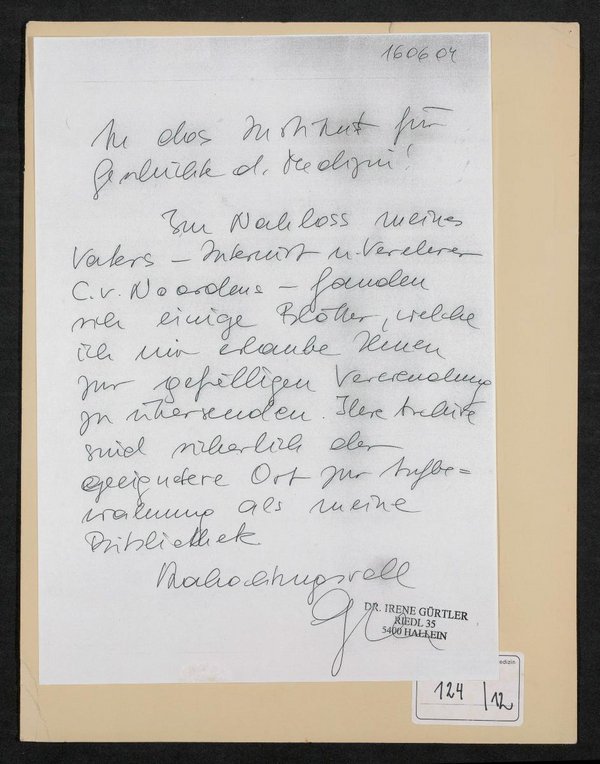 160604
An das Institut für
Geschichte d. Medizin!
Im Nachlass meines
Vaters – Internist u. Verehrer
C. v. Noordens – fanden
sich einige Blätter, welche
ich mir erlaube Ihnen
zur gefälligen Verwendung
zu übersenden. Ihre Archive
sind sicherlich der
geeignetere Ort zur Aufbe=
wahrung als meine
Bibliothek.
Hochachtungsvoll
DR. IRENE GÜRTLER
RIEDL 35
5400 HALLEIN
medizin
124/12